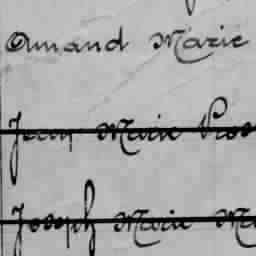 Armand Marie
Jean Marie
Joseph Marie